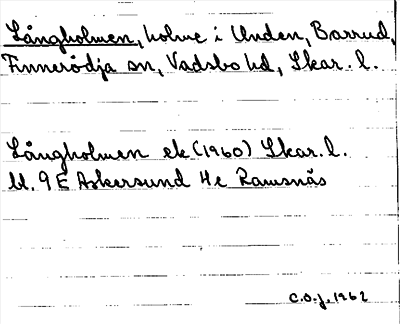 Långholmen, holme i Unden, Barrud,
Finnerödja sn, Vadsbo hd, Skar. l.
Långholmen ek (1960) Skar. l.
bl. 9 E Askersund 4c Ramsnäs
C.O.J. 1962